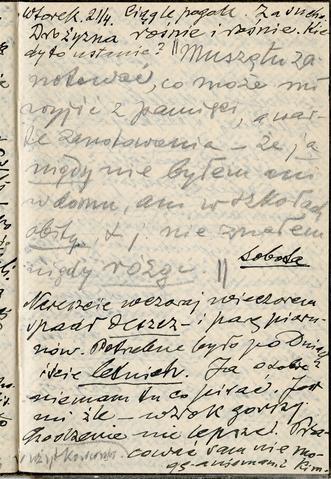 Wtorek. 21/4. Ciągle pogoda. Za sucho
Drożyzna rośnie i rośnie. Kie
dy to ustanie? || Muszę tu za
notować, co może mi
wyjść z pamięci, a war
te zanotowania – że ja
nigdy nie byłem ani
w domu, ani w szkołach
bity. &, nie znałem
nigdy rózgi. ||
Sobota
Nareszcie wczoraj wieczorem
spadł deszcz – i parę pioru-
nów. Potrzebne było po Dniach
iście letnich. Ja o sobie?
niemam tu co pisać. Jest
mi źle – wzrok gorszy
Chodzenie nie lepsze. Pra-
cować sam nie mo-
gę – a niemam z kim